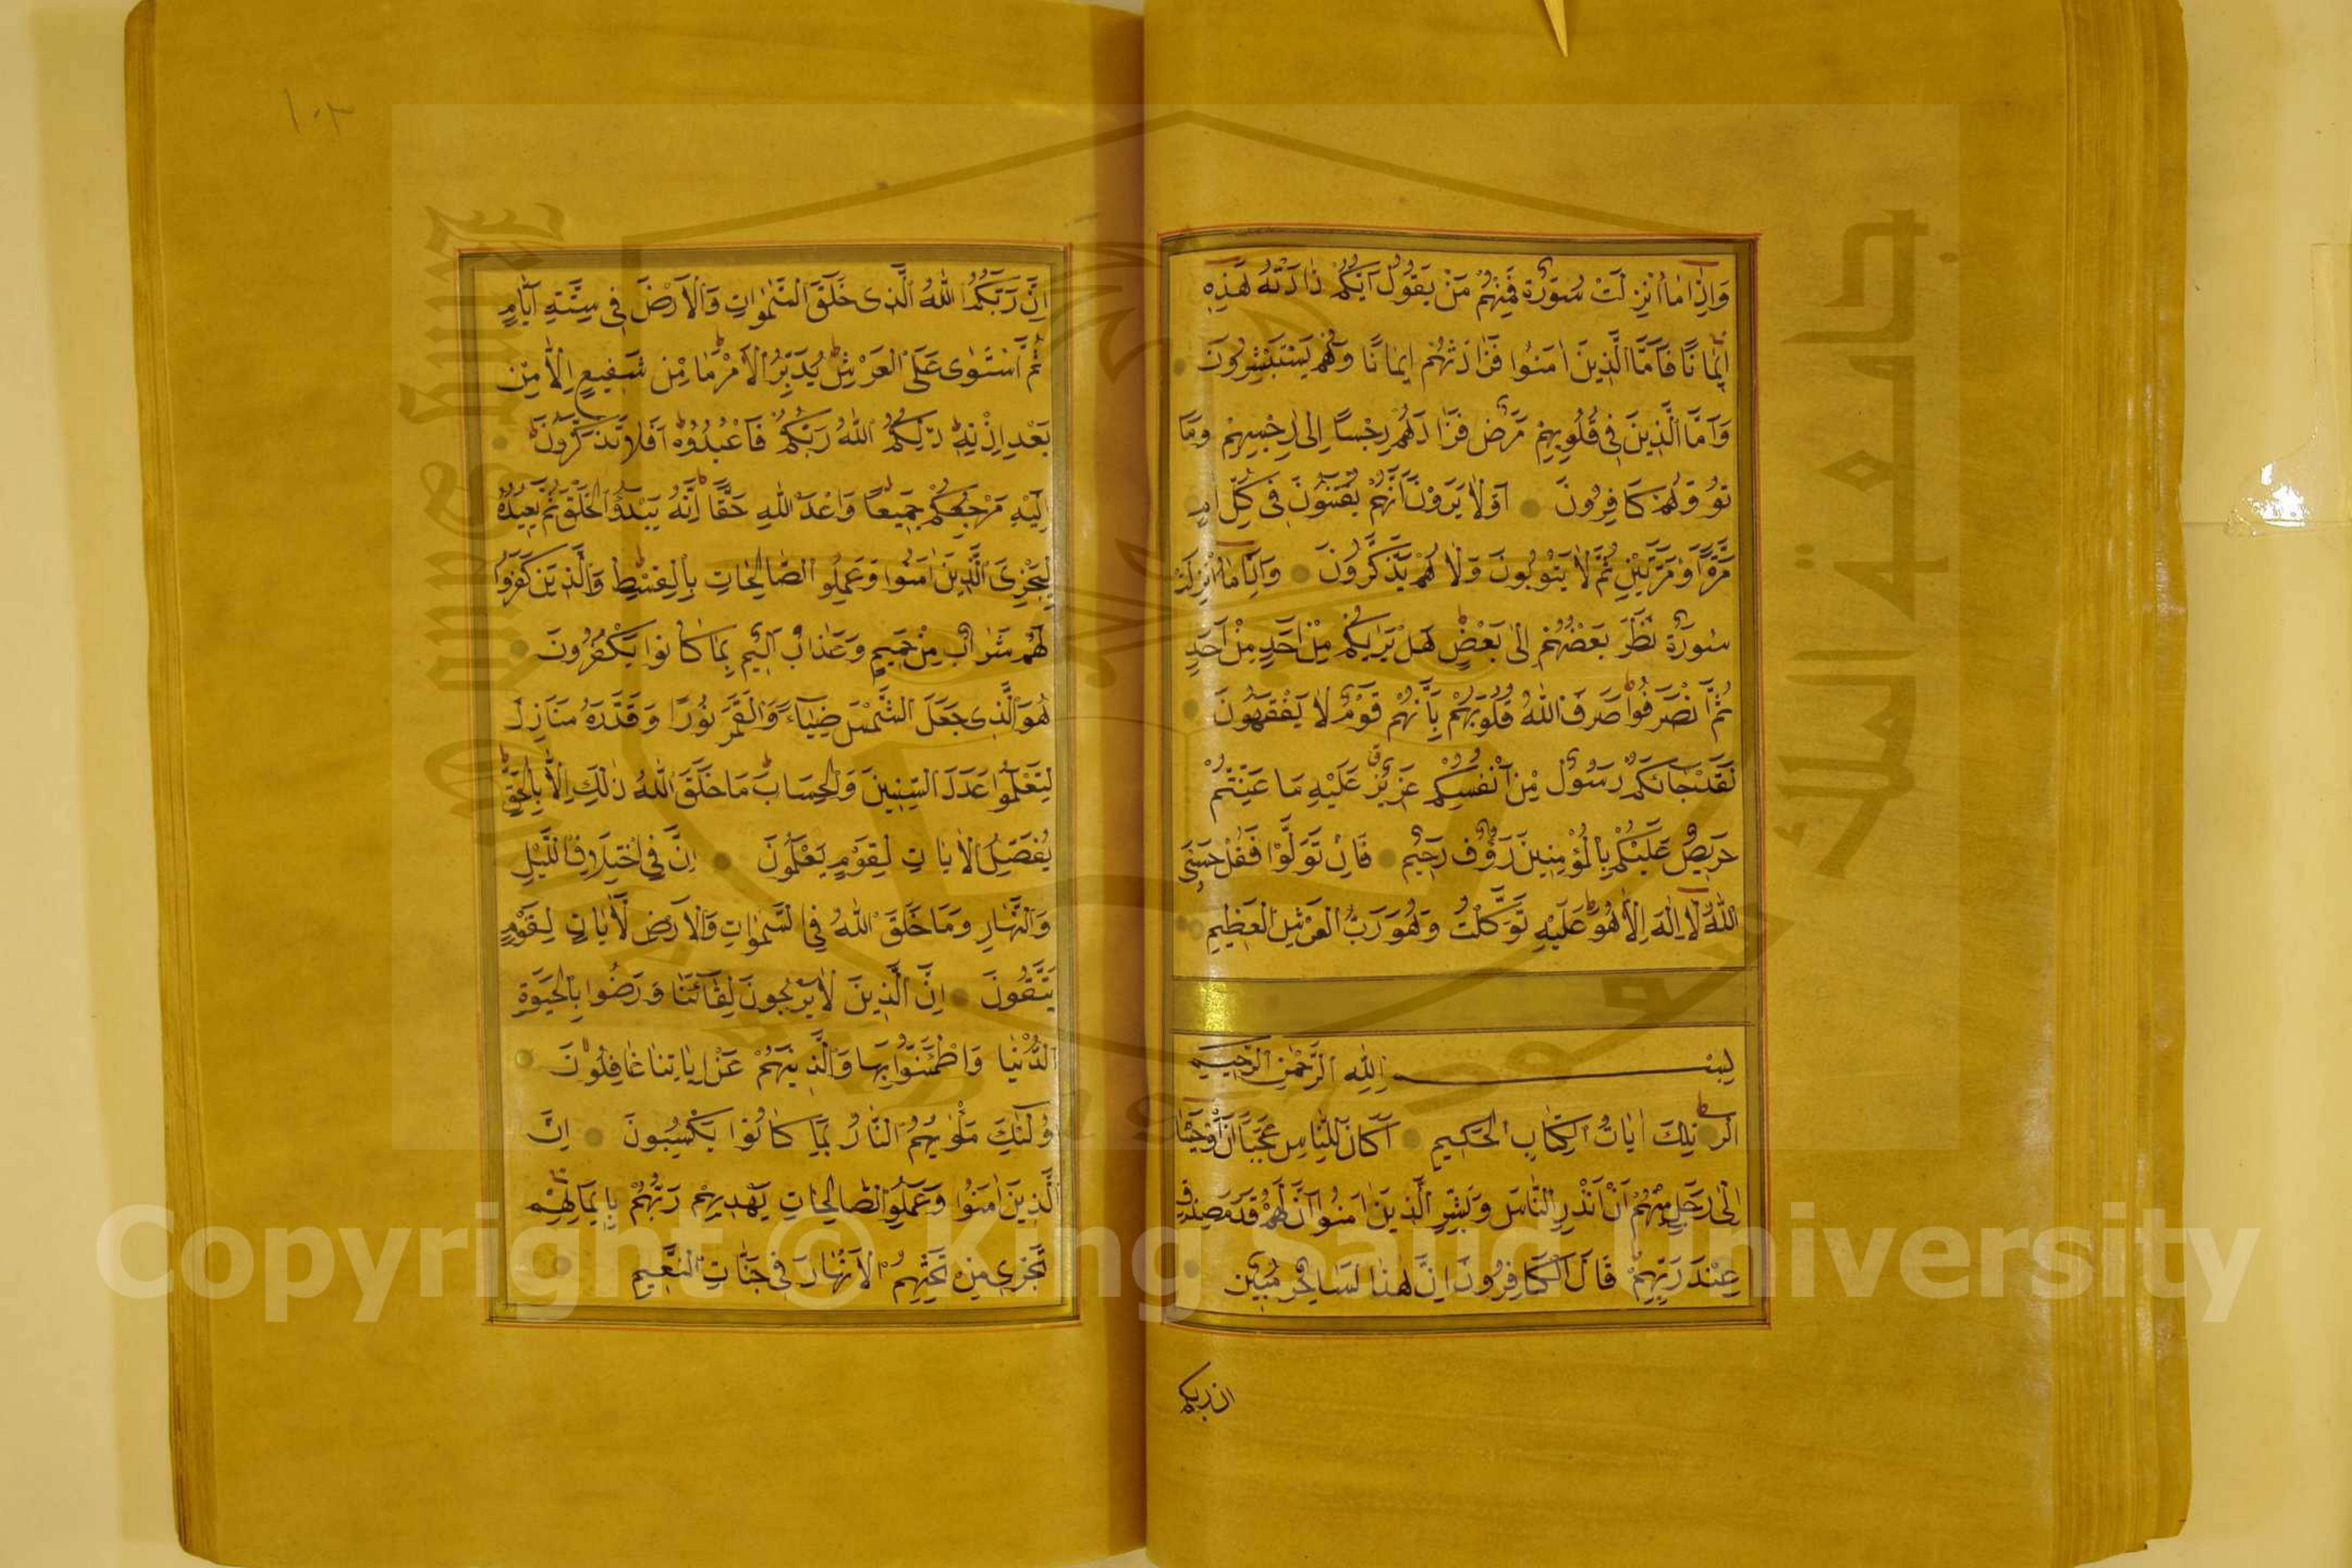 وَاِذَا مَا اُنْزِلَتْ سُورَةٌ فَمِنْهُمْ مَنْ يَقُولُ اَيُّكُمْ زَادَتْهُ هٰذِهِ
اِيمَانًا فَاَمَّا الَّذِينَ اٰمَنُوا فَزَادَتْهُمْ اِيمَانًا وَهُمْ يَسْتَبْشِرُونَ
وَاَمَّا الَّذِينَ فِي قُلُوبِهِمْ مَرَضٌ فَزَادَتْهُمْ رِجْسًا اِلٰى رِجْسِهِمْ وَمَا
تُوا وَهُمْ كَافِرُونَ اَوَلَا يَرَوْنَ اَنَّهُمْ يُفْتَنُونَ فِي كُلِّ عَامٍ
مَرَّةً اَوْ مَرَّتَيْنِ ثُمَّ لَا يَتُوبُونَ وَلَا هُمْ يَذَّكَّرُونَ وَاِذَا مَا اُنْزِلَتْ
سُورَةٌ نَظَرَ بَعْضُهُمْ اِلٰى بَعْضٍ هَلْ يَرٰيكُمْ مِنْ اَحَدٍ مِنْ اَحَدٍ
ثُمَّ انْصَرَفُوا صَرَفَ اللّٰهُ قُلُوبَهُمْ بِاَنَّهُمْ قَوْمٌ لَا يَفْقَهُونَ
لَقَدْ جَائَكُمْ رَسُولٌ مِنْ اَنْفُسِكُمْ عَزِيزٌ عَلَيْهِ مَا عَنِتُّمْ
حَرِيصٌ عَلَيْكُمْ بِالْمُؤْمِنِينَ رَؤُفٌ رَحِيمٌ فَاِنْ تَوَلَّوْا فَقُلْ حَسْبِيَ
اللّٰهُ لَا اِلٰهَ اِلَّا هُوَ عَلَيْهِ تَوَكَّلْتُ وَهُوَ رَبُّ الْعَرْشِ الْعَظِيمِ
بِسْمِ اللّٰهِ الرَّحْمٰنِ الرَّحِيمِ
الٓرٰ تِلْكَ اٰيَاتُ الْكِتَابِ الْحَكِيمِ اَكَانَ لِلنَّاسِ عَجَبًا اَنْ اَوْحَيْنَا
اِلٰى رَجُلٍ مِنْهُمْ اَنْ اَنْذِرِ النَّاسَ وَبَشِّرِ الَّذِينَ اٰمَنُوا اَنَّ لَهُمْ قَدَمَ صِدْقٍ
عِنْدَ رَبِّهِمْ قَالَ الْكَافِرُونَ اِنَّ هٰذَا لَسَاحِرٌ مُبِينٌ
ان ربكم
١٠٣
اِنَّ رَبَّكُمُ اللّٰهُ الَّذِي خَلَقَ السَّمٰوَاتِ وَالْاَرْضَ فِي سِتَّةِ اَيَّامٍ
ثُمَّ اسْتَوٰى عَلَى الْعَرْشِ يُدَبِّرُ الْاَمْرَ مَا مِنْ شَفِيعٍ اِلَّا مِنْ
بَعْدِ اِذْنِهِ ذٰلِكُمُ اللّٰهُ رَبُّكُمْ فَاعْبُدُوهُ اَفَلَا تَذَكَّرُونَ
اِلَيْهِ مَرْجِعُكُمْ جَمِيعًا وَعْدَ اللّٰهِ حَقًّا اِنَّهُ يَبْدَؤُا الْخَلْقَ ثُمَّ يُعِيدُهُ
لِيَجْزِيَ الَّذِينَ اٰمَنُوا وَعَمِلُوا الصَّالِحَاتِ بِالْقِسْطِ وَالَّذِينَ كَفَرُوا
لَهُمْ شَرَابٌ مِنْ حَمِيمٍ وَعَذَابٌ اَلِيمٌ بِمَا كَانُوا يَكْفُرُونَ
هُوَ الَّذِي جَعَلَ الشَّمْسَ ضِيَاءً وَالْقَمَرَ نُورًا وَقَدَّرَهُ مَنَازِلَ
لِتَعْلَمُوا عَدَدَ السِّنِينَ وَالْحِسَابَ مَا خَلَقَ اللّٰهُ ذٰلِكَ اِلَّا بِالْحَقِّ
يُفَصِّلُ الْاٰيَاتِ لِقَوْمٍ يَعْلَمُونَ اِنَّ فِي اخْتِلَافِ اللَّيْلِ
وَالنَّهَارِ وَمَا خَلَقَ اللّٰهُ فِي السَّمٰوَاتِ وَالْاَرْضِ لَاٰيَاتٍ لِقَوْمٍ
يَتَّقُونَ اِنَّ الَّذِينَ لَا يَرْجُونَ لِقَائَنَا وَرَضُوا بِالْحَيٰوةِ
الدُّنْيَا وَاطْمَئَنُّوا بِهَا وَالَّذِينَ هُمْ عَنْ اٰيَاتِنَا غَافِلُونَ
اُولٰئِكَ مَأْوٰيهُمُ النَّارُ بِمَا كَانُوا يَكْسِبُونَ اِنَّ
الَّذِينَ اٰمَنُوا وَعَمِلُوا الصَّالِحَاتِ يَهْدِيهِمْ رَبُّهُمْ بِاِيمَانِهِمْ
تَجْرِي مِنْ تَحْتِهِمُ الْاَنْهَارُ فِي جَنَّاتِ النَّعِيمِ
جامعة الملك سعود
King Saud University
1957
Copyright © King Saud University